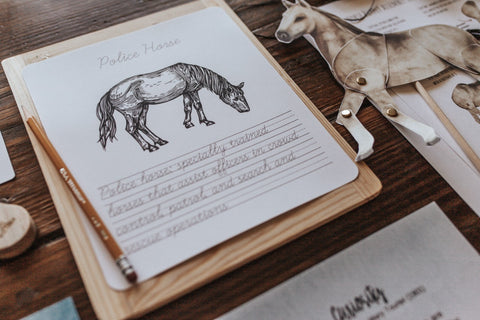 Police Horse
Police horses specially trained
horses that assist officers in crowd
control, patrol, and search and
rescue operations.
Curiosity